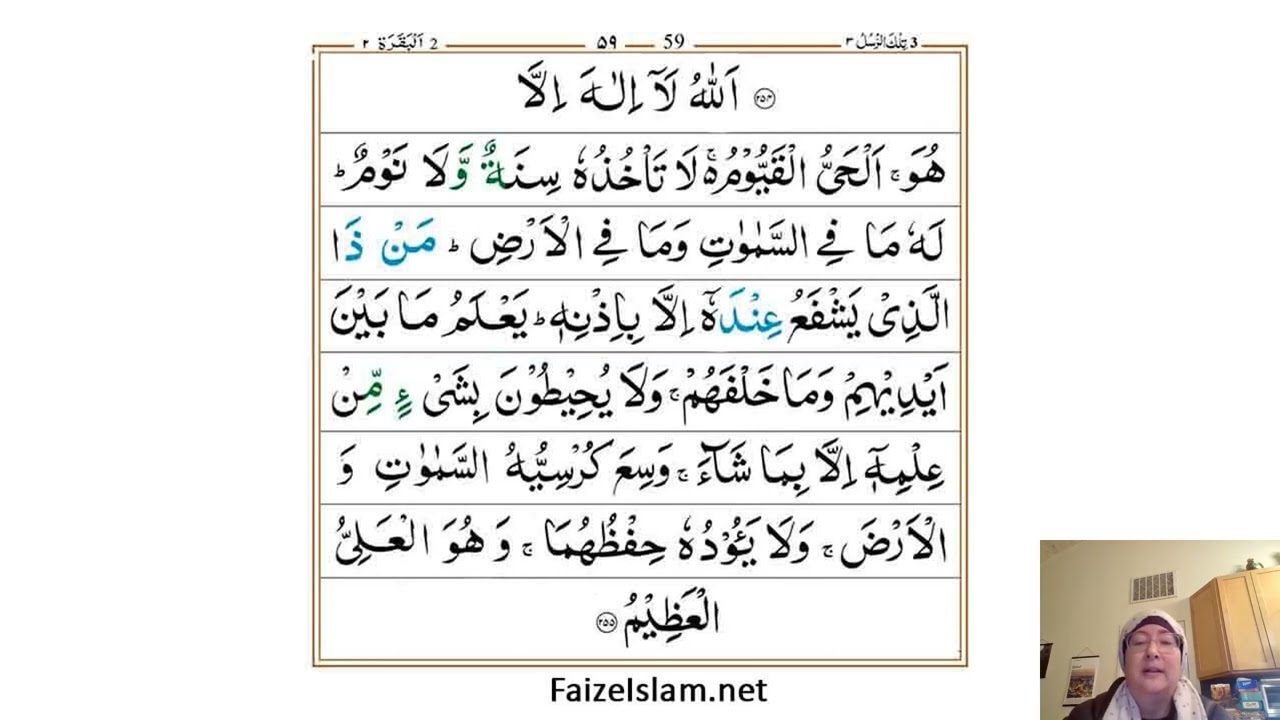 2 اَلْبَقَرَة ٢ ۵۹ 59 3 تِلْكَ الرُّسُلُ ٣
۲۵۴ اَللّٰهُ لَاۤ اِلٰهَ اِلَّا
هُوَ ۚ اَلْحَیُّ الْقَیُّوْمُ ۚ۬ لَا تَاْخُذُهٗ سِنَةٌ وَّلَا نَوْمٌ ؕ
لَهٗ مَا فِی السَّمٰوٰتِ وَمَا فِی الْاَرْضِ ؕ مَنْ ذَا
الَّذِیْ یَشْفَعُ عِنْدَهٗۤ اِلَّا بِاِذْنِهٖ ؕ یَعْلَمُ مَا بَیْنَ
اَیْدِیْهِمْ وَمَا خَلْفَهُمْ ۚ وَلَا یُحِیْطُوْنَ بِشَیْءٍ مِّنْ
عِلْمِهٖۤ اِلَّا بِمَا شَآءَ ۚ وَسِعَ كُرْسِیُّهُ السَّمٰوٰتِ وَ
الْاَرْضَ ۚ وَلَا یَـُٔوْدُهٗ حِفْظُهُمَا ۚ وَ هُوَ الْعَلِیُّ
الْعَظِیْمُ ۲۵۵
FaizeIslam.net